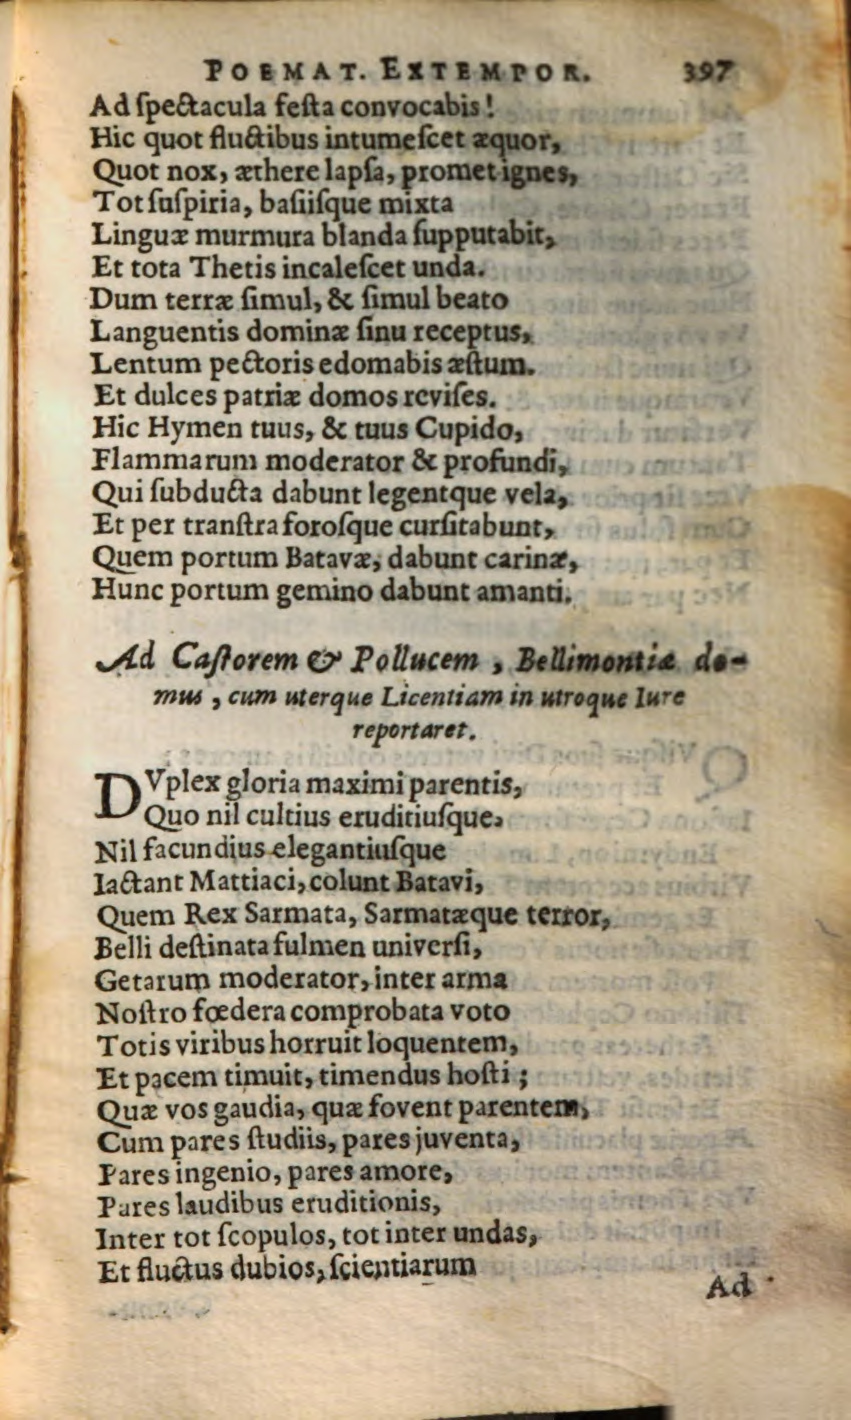 POEMAT. EXTEMPOR. 397
Ad ſpectacula feſta convocabis!
Hic quot fluctibus intumeſcet æquor,
Quot nox, æthere lapſa, promet ignes,
Tot ſuſpiria, baſiiſque mixta
Linguæ murmura blanda ſupputabit,
Et tota Thetis incaleſcet unda.
Dum terræ ſimul, & ſimul beato
Languentis dominæ ſinu receptus,
Lentum pectoris edomabis æſtum.
Et dulces patriæ domos reviſes.
Hic Hymen tuus, & tuus Cupido,
Flammarum moderator & profundi,
Qui ſubducta dabunt legentque vela,
Et per tranſtra foroſque curſitabunt,
Quem portum Batavæ, dabunt carinæ,
Hunc portum gemino dabunt amanti.
Ad Caſtorem & Pollucem, Bellimontiæ do-
mus, cum uterque Licentiam in utroque Iure
reportaret.
DVplex gloria maximi parentis,
Quo nil cultius eruditiuſque,
Nil facundius elegantiuſque
Iactant Mattiaci, colunt Batavi,
Quem Rex Sarmata, Sarmatæque terror,
Belli deſtinata fulmen univerſi,
Getarum moderator, inter arma
Noſtro fœdera comprobata voto
Totis viribus horruit loquentem,
Et pacem timuit, timendus hoſti;
Quæ vos gaudia, quæ fovent parentem,
Cum pares ſtudiis, pares juventa,
Pares ingenio, pares amore,
Pares laudibus eruditionis,
Inter tot ſcopulos, tot inter undas,
Et fluctus dubios, ſcientiarum
Ad